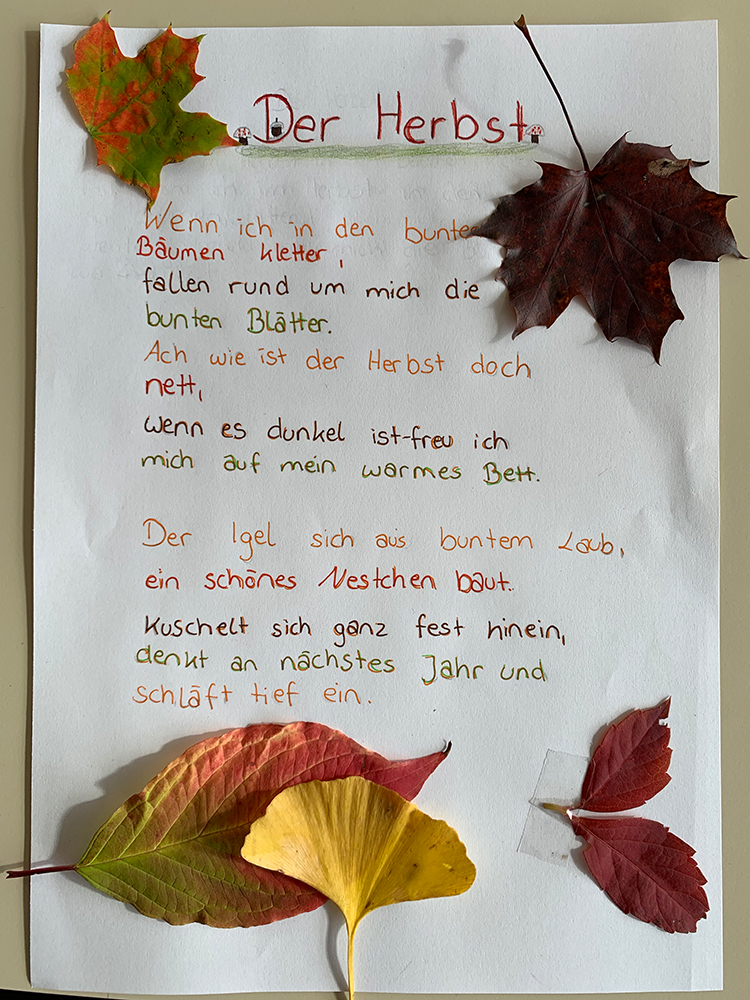 Der Herbst
Wenn ich in den bunten
Bäumen kletter,
fallen rund um mich die
bunten Blätter.
Ach wie ist der Herbst doch
nett,
wenn es dunkel ist-freu ich
mich auf mein warmes Bett.
Der Igel sich aus buntem Laub,
ein schönes Nestchen baut.
Kuschelt sich ganz fest hinein,
denkt an nächstes Jahr und
schläft tief ein.